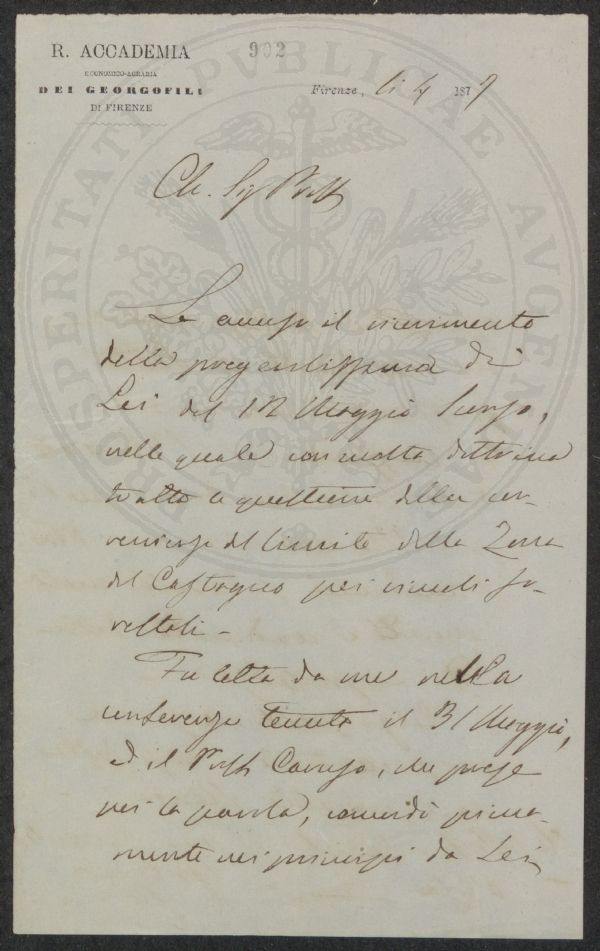 R. ACCADEMIA
ECONOMICO-AGRARIA
DEI GEORGOFILI
DI FIRENZE
902
Firenze, li 4 1877
PROSPERITATI PUBLICAE AUGENDAE
Ch. Sig Proff
Le accuso il ricevimento
della pregentissima di
Lei del 12 Maggio scorso,
nella quale con molta dottrina
tratta la questione della con-
venienza del limite della Zona
del Castagno pei vincoli fo-
restali.
Fu letta da me nella
conferenza tenuta il 31 Maggio,
ed il Proff Caruso, che prese
poi la parola, concordò piena-
mente nei principi da Lei